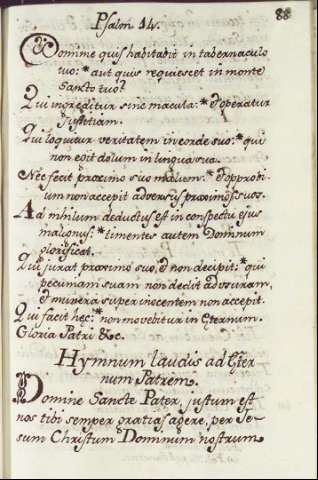 88
Psalm 14.
Domine quis habitabit in tabernaculo
tuo: * aut quis requiescet in monte
Sancto tuo?
Qui ingreditur sine macula: * & operatur
justitiam.
Qui loquitur veritatem in corde suo: * qui
non egit dolum in lingua sua.
Nec fecit proximo suo malum: * & opprobri-
um non accepit adversus proximos suos.
Ad nihilum deductus est in conspectu ejus
malignus: * timentes autem Dominum
glorificat.
Qui jurat proximo suo, & non decipit: * qui
pecuniam suam non dedit ad usuram,
& munera super inocentem non accepit.
Qui facit hec: * non movebitur in Eternum.
Gloria Patri &c.
Hymnum laudis ad Eter
num Patrem.
Domine Sancte Pater, justum est
nos tibi semper gratias agere, per Je-
sum Christum Dominum nostrum